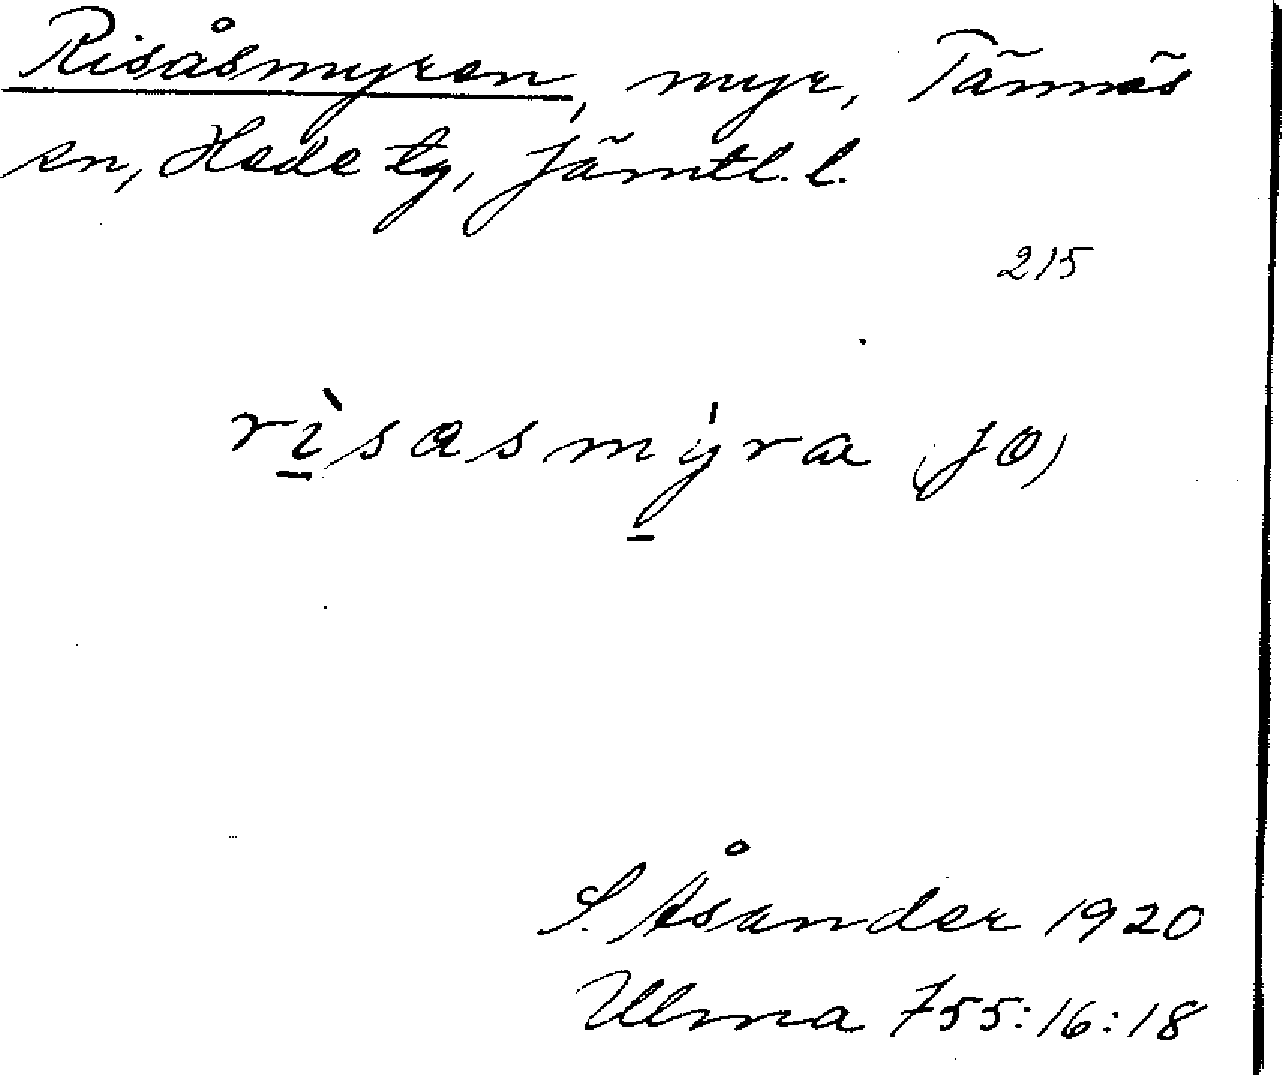 Risåsmyren, myr, Tännäs
sn, Hede tg, Jämtl. l.
215
rìsasmýra (JO)
S. Åsander 1920
Ulma 755:16:18